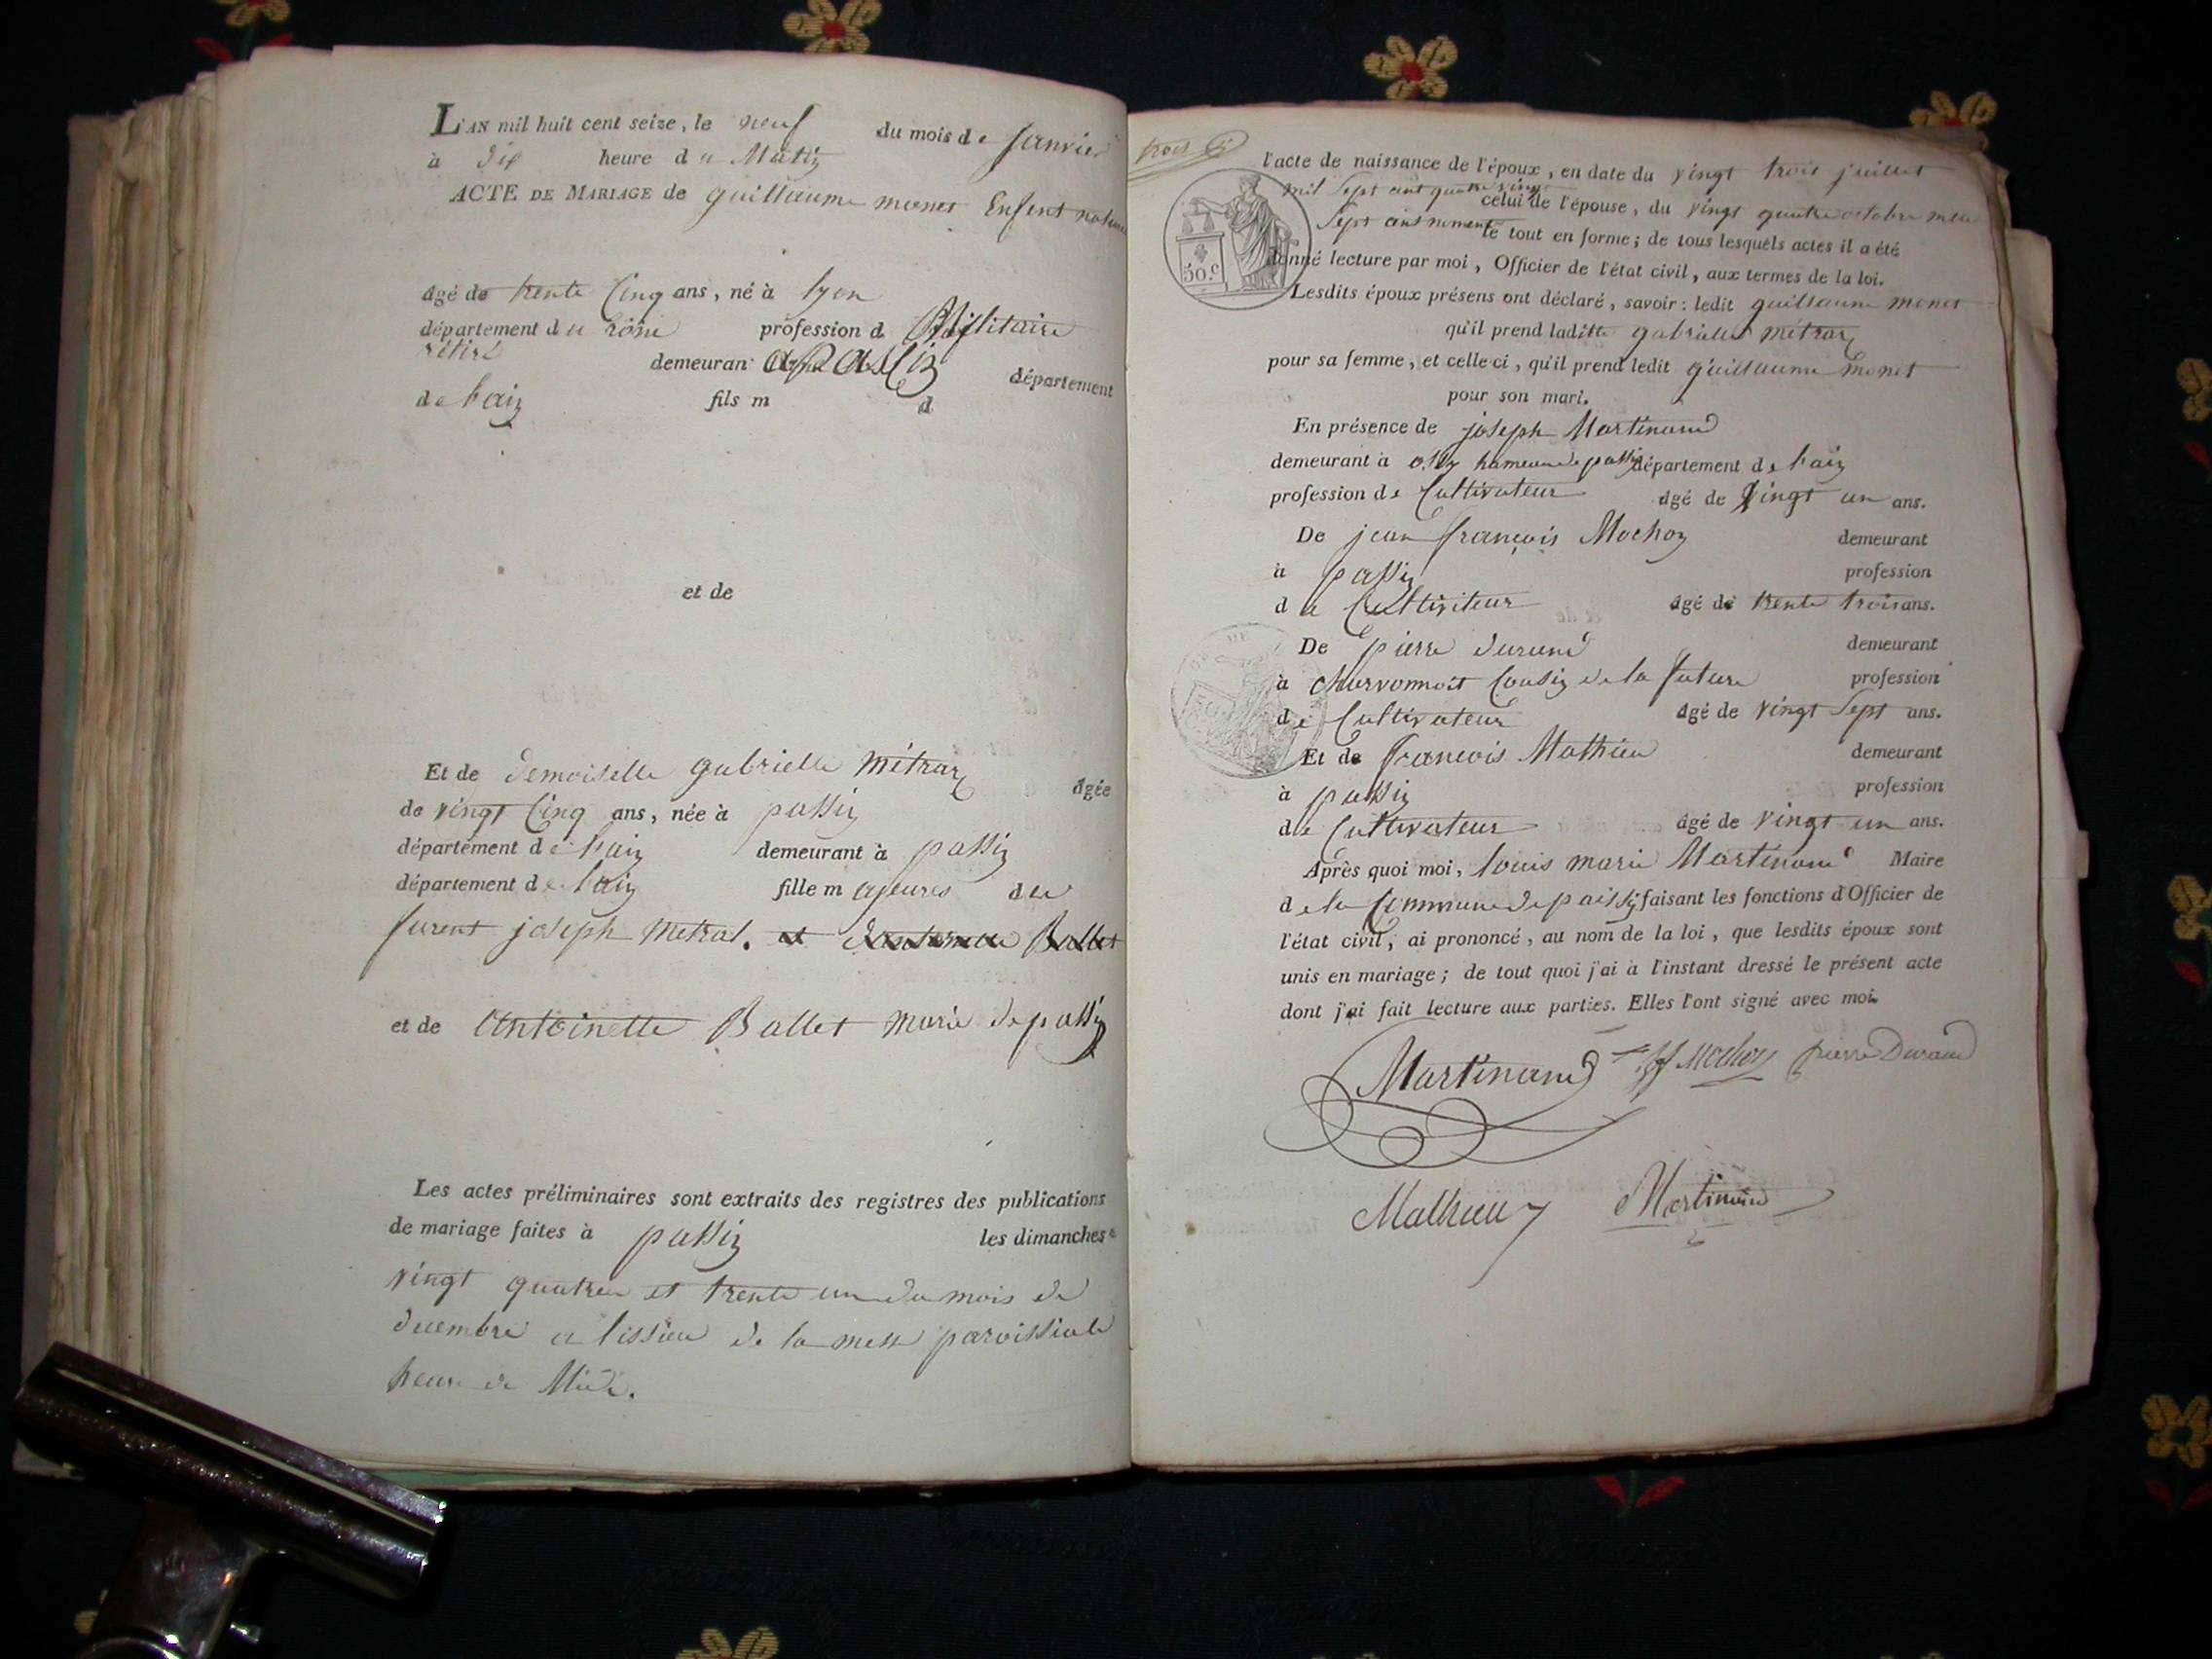 L'AN mil huit cent seize, le neuf du mois de janvier
à dix heure du Matin
ACTE DE MARIAGE de guillaume monet Enfent
âgé de trente Cinq ans, né à lyon
département du rône profession d Militaire
rétiré demeuran a passin département
de lain fils m d
et de
Et de demoiselle gabrielle métraz âgée
de vingt Cinq ans, née à passin
département de lain demeurant à passin
département de lain fille majeures du
furent joseph metral. et Antoinette Ballet
et de Antoinette Ballet marie de passin
Les actes préliminaires sont extraits des registres des publications
de mariage faites à passin les dimanches
vingt quatre et trente un du mois de
decembre a lissue de la messe paroissiale
heure de Midi.
trois
l'acte de naissance de l'époux, en date du vingt trois juillet
mil sept cent quatre vingt
celui de l'épouse, du vingt quatre octobre mille
sept cent nonente le tout en forme; de tous lesquels actes il a été
50.c
donné lecture par moi, Officier de l'état civil, aux termes de la loi.
Lesdits époux présens ont déclaré, savoir: ledit guillaume monet
qu'il prend laditte gabrielle métraz
pour sa femme, et celle-ci, qu'il prend ledit guillaume monet
pour son mari.
En présence de joseph Martinand
demeurant à hameau de passin département de lain
profession de Cultivateur âgé de vingt un ans.
De jean françois Mochon demeurant
à passin profession
de Cultiviteur âgé de trente trois ans.
De pierre durand demeurant
à Charvonnost Cousin de la future profession
de Cultivateur âgé de vingt sept ans.
Et de francois Mathieu demeurant
à passin profession
de Cultivateur âgé de vingt un ans.
Après quoi moi, louis marie Martinand Maire
de la Commune de passin faisant les fonctions d'Officier de
l'état civil, ai prononcé, au nom de la loi, que lesdits époux sont
unis en mariage; de tout quoi j'ai à l'instant dressé le présent acte
dont j'ai fait lecture aux parties. Elles l'ont signé avec moi.
Martinand jf Mochon pierre Durand
Mathieu Martinand